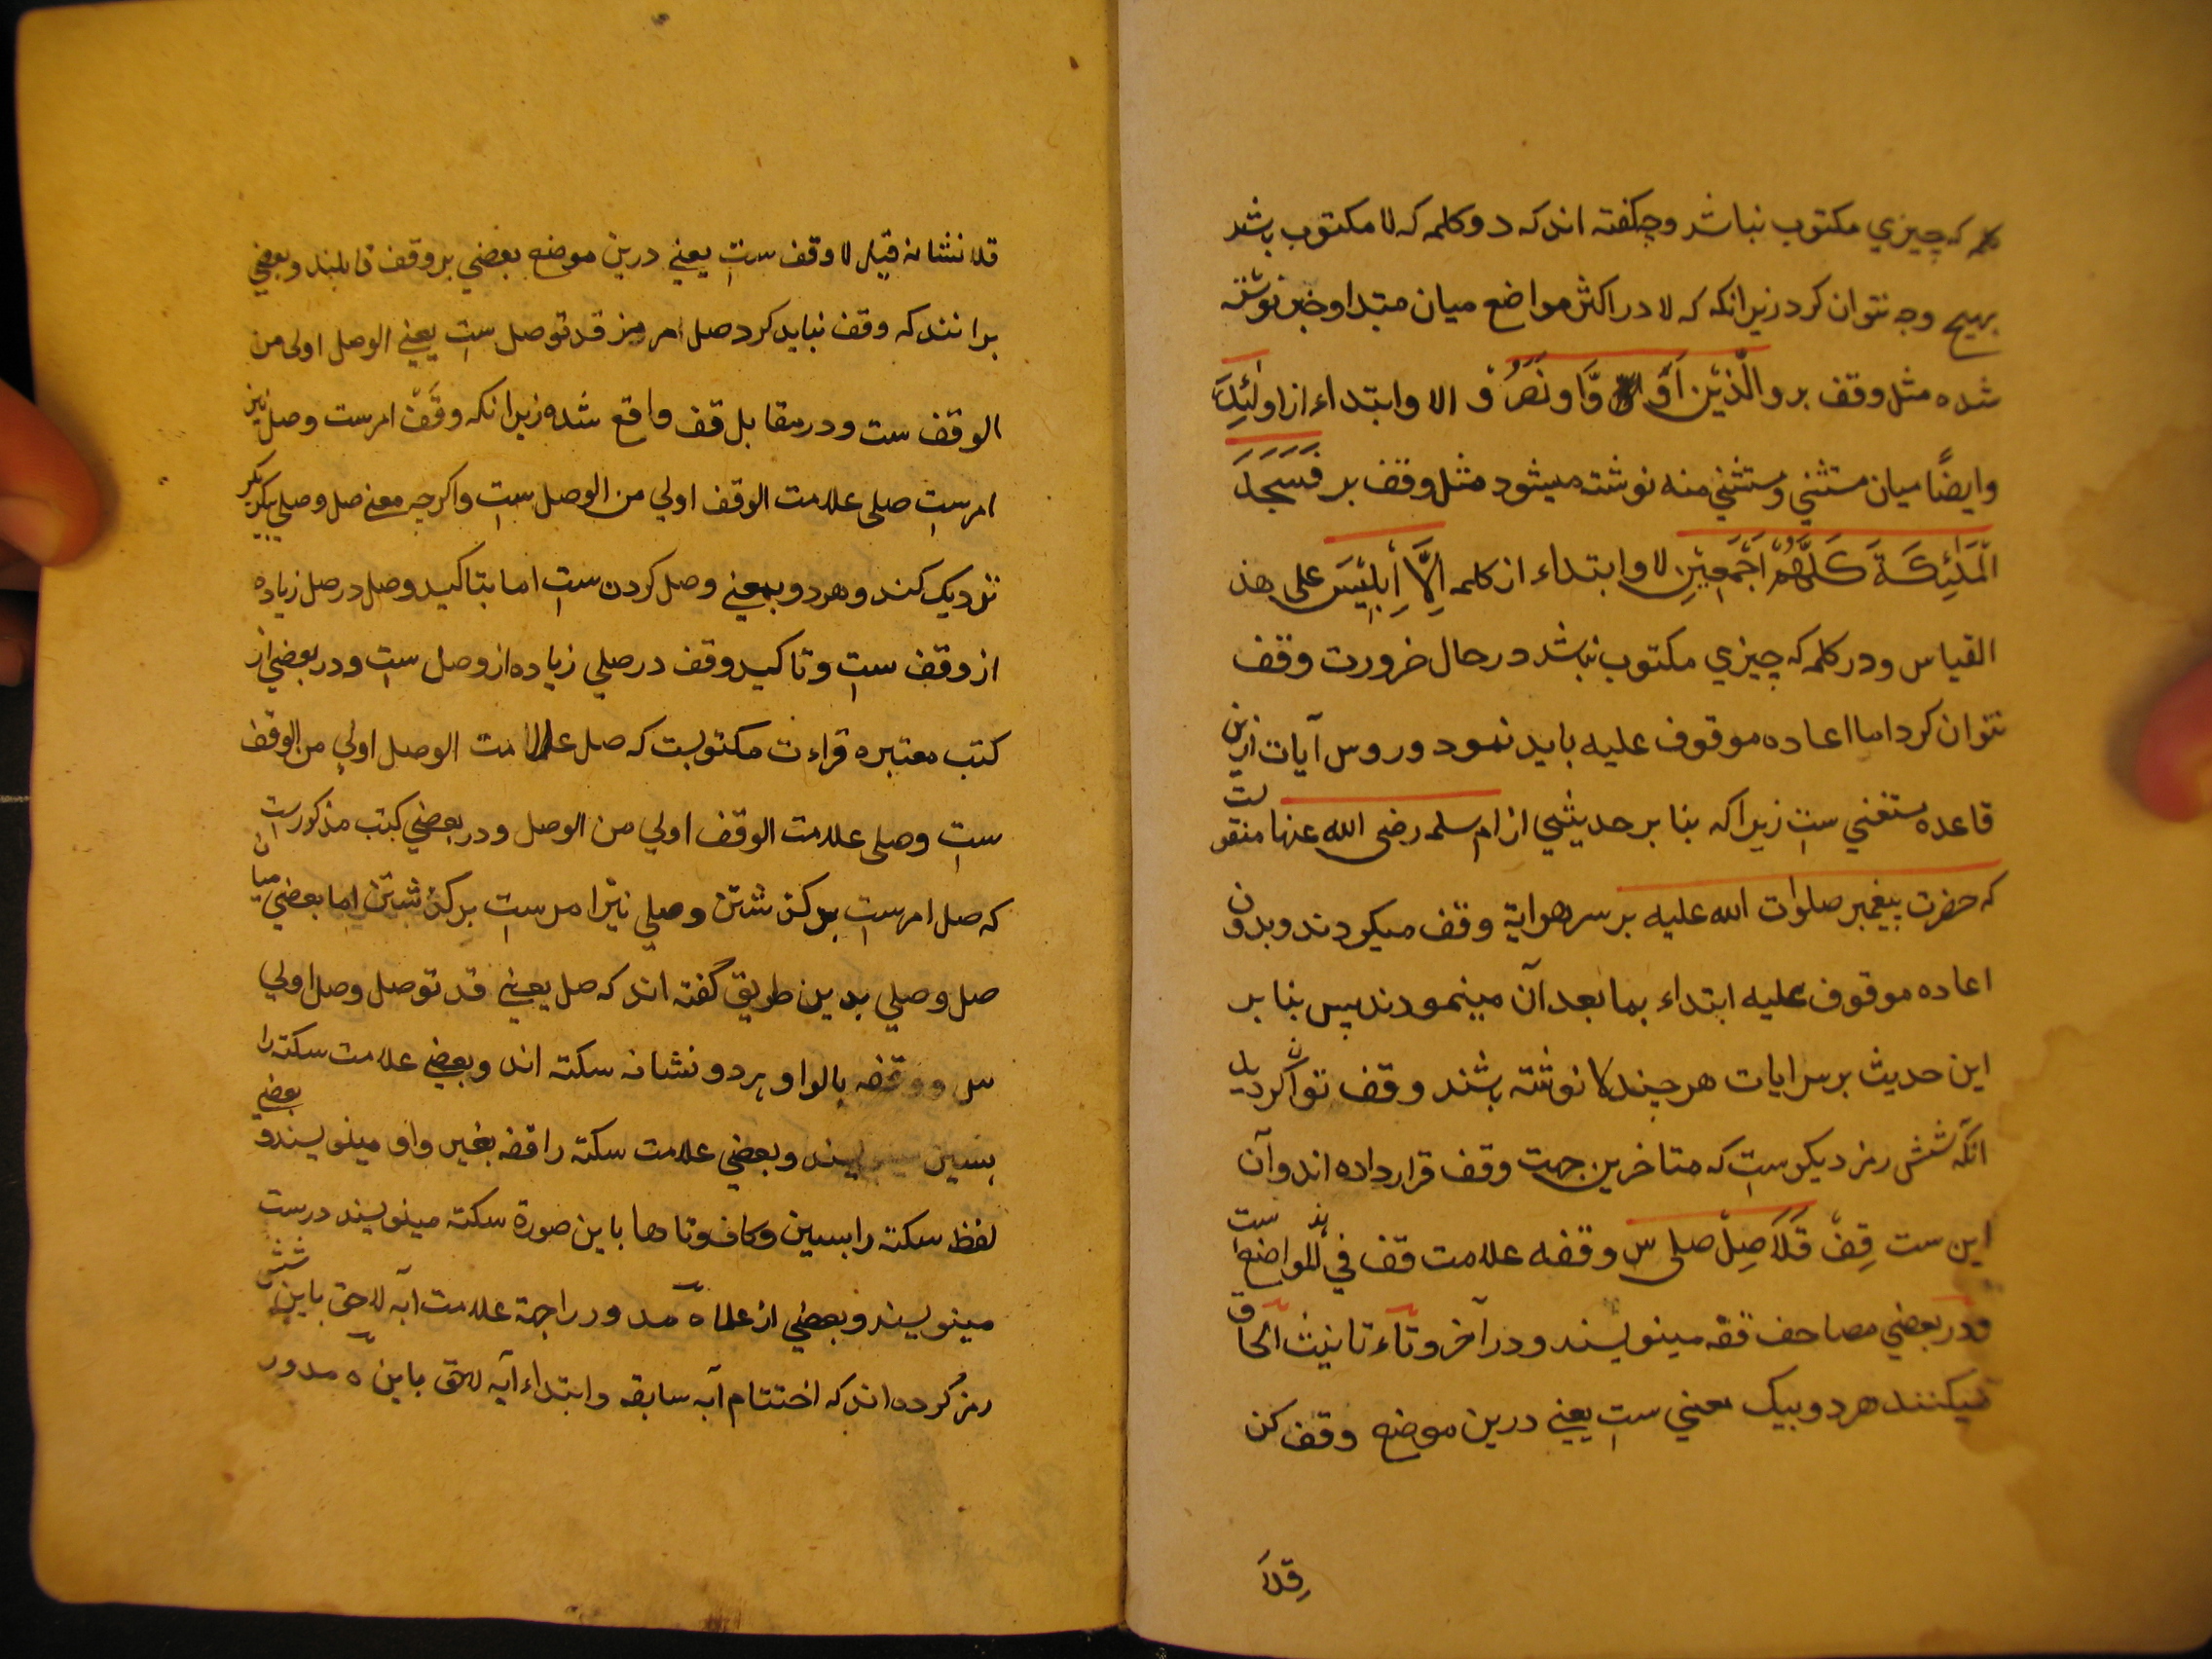 کلمه که چیزي مکتوب نباشد وچگفته اند که دو کلمه که لا مکتوب باشد
بهیچ وجه نتوان کرد زیرانکه که لا در اکثر مواضع میان مبتدا وخبر نوشته
شده مثل وقف بر والَّذِیْنَ اٰوَوْا وَّنَصَرُوْا لا وابتداء از اولٰئِكَ
وایضًا میان مستثني ومستثني منه نوشته میشود مثل وقف بر فَسَجَدَ
الْمَلٰئِکَةُ کُلُّهُمْ اَجْمَعِیْنَ لا وابتداء از کلمه اِلَّا اِبْلِیْسَ علی هذ
القیاس ودر کلمه که چیزي مکتوب نباشد در حال ضرورت وقف
نتوان کرد اما اعاده موقوف علیه باید نمود وروس آیات ازین
قاعده مستغني ست زیراکه بنا بر حدیثي از ام سلمه رضی الله عنها منقولست
که حضرت پیغمبر صلوات الله علیه بر سر هر ایة وقف میکردند وبدون
اعاده موقوف علیه ابتداء بما بعد آن مینمودند پس بنا بر
این حدیث بر سر ایات هر چند لا نوشته باشند وقف توان کرد
آنکه شش رمز دیکر ست که متاخرین جهت وقف قرار داده اند وآن
این ست قِفْ قَلَا صِلْ صلی س وقفه علامت قف في المواضع ست
ودر بعضي مصاحف قفه مینویسند ودر آخر و تاء تانیث الحاق
میکنند هر دو بیک معني ست یعني درین موضع وقف کن
قِلَا
قلا نشانه قیل لا وقف ست یعني درین موضع بعضي بر وقف قایلند وبعضي
برانند که وقف نباید کرد صل رمز قد توصل ست یعني الوصل اولی من
الوقف ست ودر مقابل قف واقع شده زیرانکه وقف امر ست وصل نیز
امر ست صلی علامت الوقف اولي من الوصل ست واکرچه معنی صل وصلي بیکدیگر
نزدیک کند وهر دو بمعني وصل کردن ست اما بتاکید وصل در صل زیاده
از وقف ست وتاکید وقف در صلي زیاده از وصل ست ودر بعضي از
کتب معتبره قراءت مکتوبست که صل علامت الوصل اولي من الوقف
ست وصلی علامت الوقف اولي من الوصل ودر بعضي کتب مذکور ست
که صل امر ست بر گذشتن وصلي نیز امر ست بر گذشتن اما بعضي میان
صل وصلي بدین طریق گفته اند که صل یعني قد توصل وصل اولي
س ووقفه بالواو هر دو نشانه سکته اند وبعضي علامت سکته را
بسین مینویسند وبعضي علامت سکته را قفه بغیر واو مینویسند وبعضي
لفظ سکته را بسین وکاف وتا وها باین صورة سکته مینویسند درست
مینویسند وبعضي از علما ه مدور را جهة علامت آیه لاحق باین شش
رمز کرده اند که اختتام آیه سابقه وابتداء آیه لاحق باین ه مدور